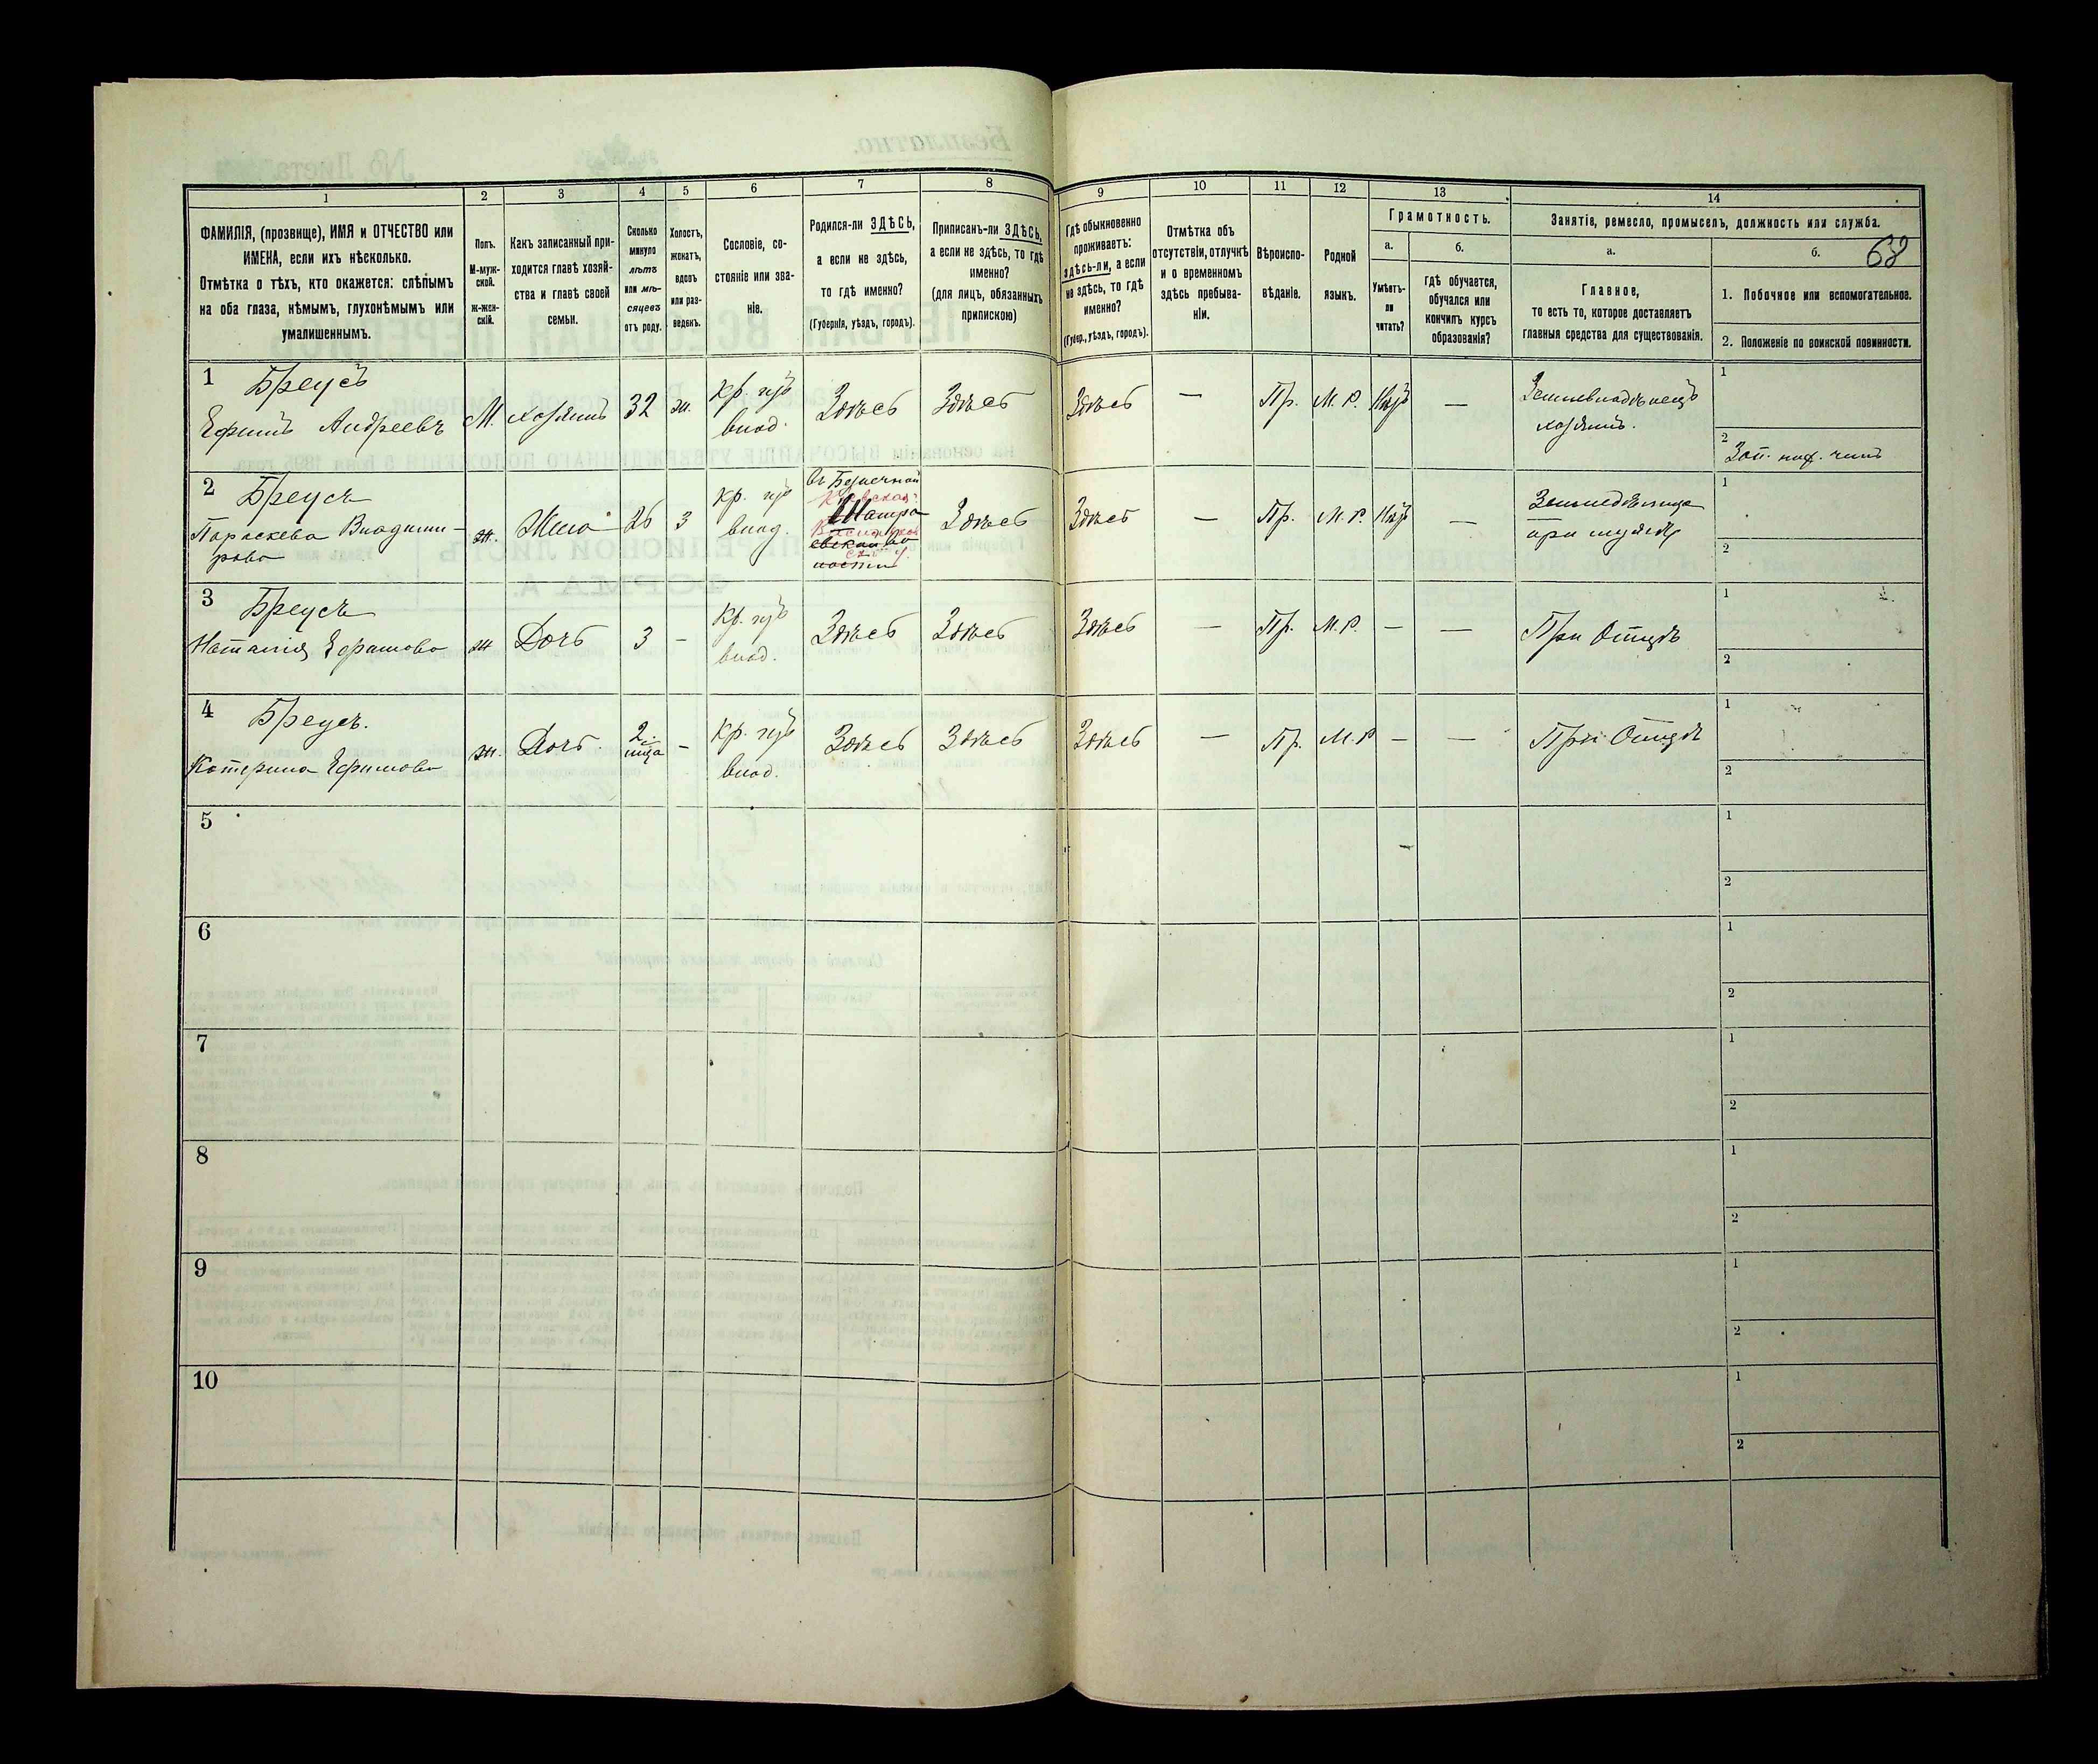 1
2
3
4
5
6
7
8
9
10
11
12
13
14
ФАМИЛІЯ, (прозвище), ИМЯ и ОТЧЕСТВО или
ИМЕНА, если ихъ нѣсколько.
Отмѣтка о тѣхъ, кто окажется: слѣпымъ
на оба глаза, нѣмымъ, глухонѣмымъ или
умалишеннымъ.
Полъ.
М-муж-
ской.
Ж-жен-
скій.
Какъ записанный при-
ходится главѣ хозяй-
ства и главѣ своей
семьи.
Сколько
минуло
лѣтъ
или мѣ-
сяцевъ
отъ роду.
Холостъ,
женатъ,
вдовъ
или раз-
веденъ.
Сословіе, со-
стояніе или зва-
ніе.
Родился-ли ЗДѢСЬ,
а если не здѣсь,
то гдѣ именно?
(Губернія, уѣздъ, городъ).
Приписанъ-ли ЗДѢСЬ,
а если не здѣсь, то гдѣ
именно?
(для лицъ, обязанныхъ
припискою)
Гдѣ обыкновенно
проживаетъ:
здѣсь-ли, а если
не здѣсь, то гдѣ
именно?
(Губер., уѣздъ, городъ).
Отмѣтка объ
отсутствіи, отлучкѣ
и о временномъ
здѣсь пребыва-
ніи.
Вѣроиспо-
вѣданіе.
Родной
языкъ.
Грамотность.
а.
Умѣетъ-
ли
читать?
б.
гдѣ обучается,
обучался или
кончилъ курсъ
образованія?
Занятіе, ремесло, промыселъ, должность или служба.
а.
Главное,
то есть то, которое доставляетъ
главныя средства для существованія.
б.
68
1. Побочное или вспомогательное.
2. Положеніе по воинской повинности.
1
Бреусъ
Ефимъ Андреевъ
М.
хозяинъ
32
ж.
Кр.
влад.
Здѣсь
Здѣсь
Здѣсь
—
Пр.
М. Р.
—
Землевладѣлецъ
хозяинъ.
1
2
Зап. ниж. чинъ
2
Бреусъ
Параскева Владими-
рова
ж.
Жена
26
3
Кр.
влад.
Здѣсь
Здѣсь
—
Пр.
М. Р.
—
при мужѣ
1
2
3
Бреусъ
Наталія Ефимова
ж
Дочь
3
–
Кр.
влад.
Здѣсь
Здѣсь
Здѣсь
—
Пр.
М. Р.
–
—
При Отцѣ
1
2
4
Бреусъ.
Катерина Ефимова
ж.
Дочь.
2.
мца
–
Кр.
влад.
Здѣсь
Здѣсь
Здѣсь
—
Пр.
М. Р
–
—
При Отцѣ
1
2
5
1
2
6
1
2
7
1
2
8
1
2
9
1
2
10
1
2